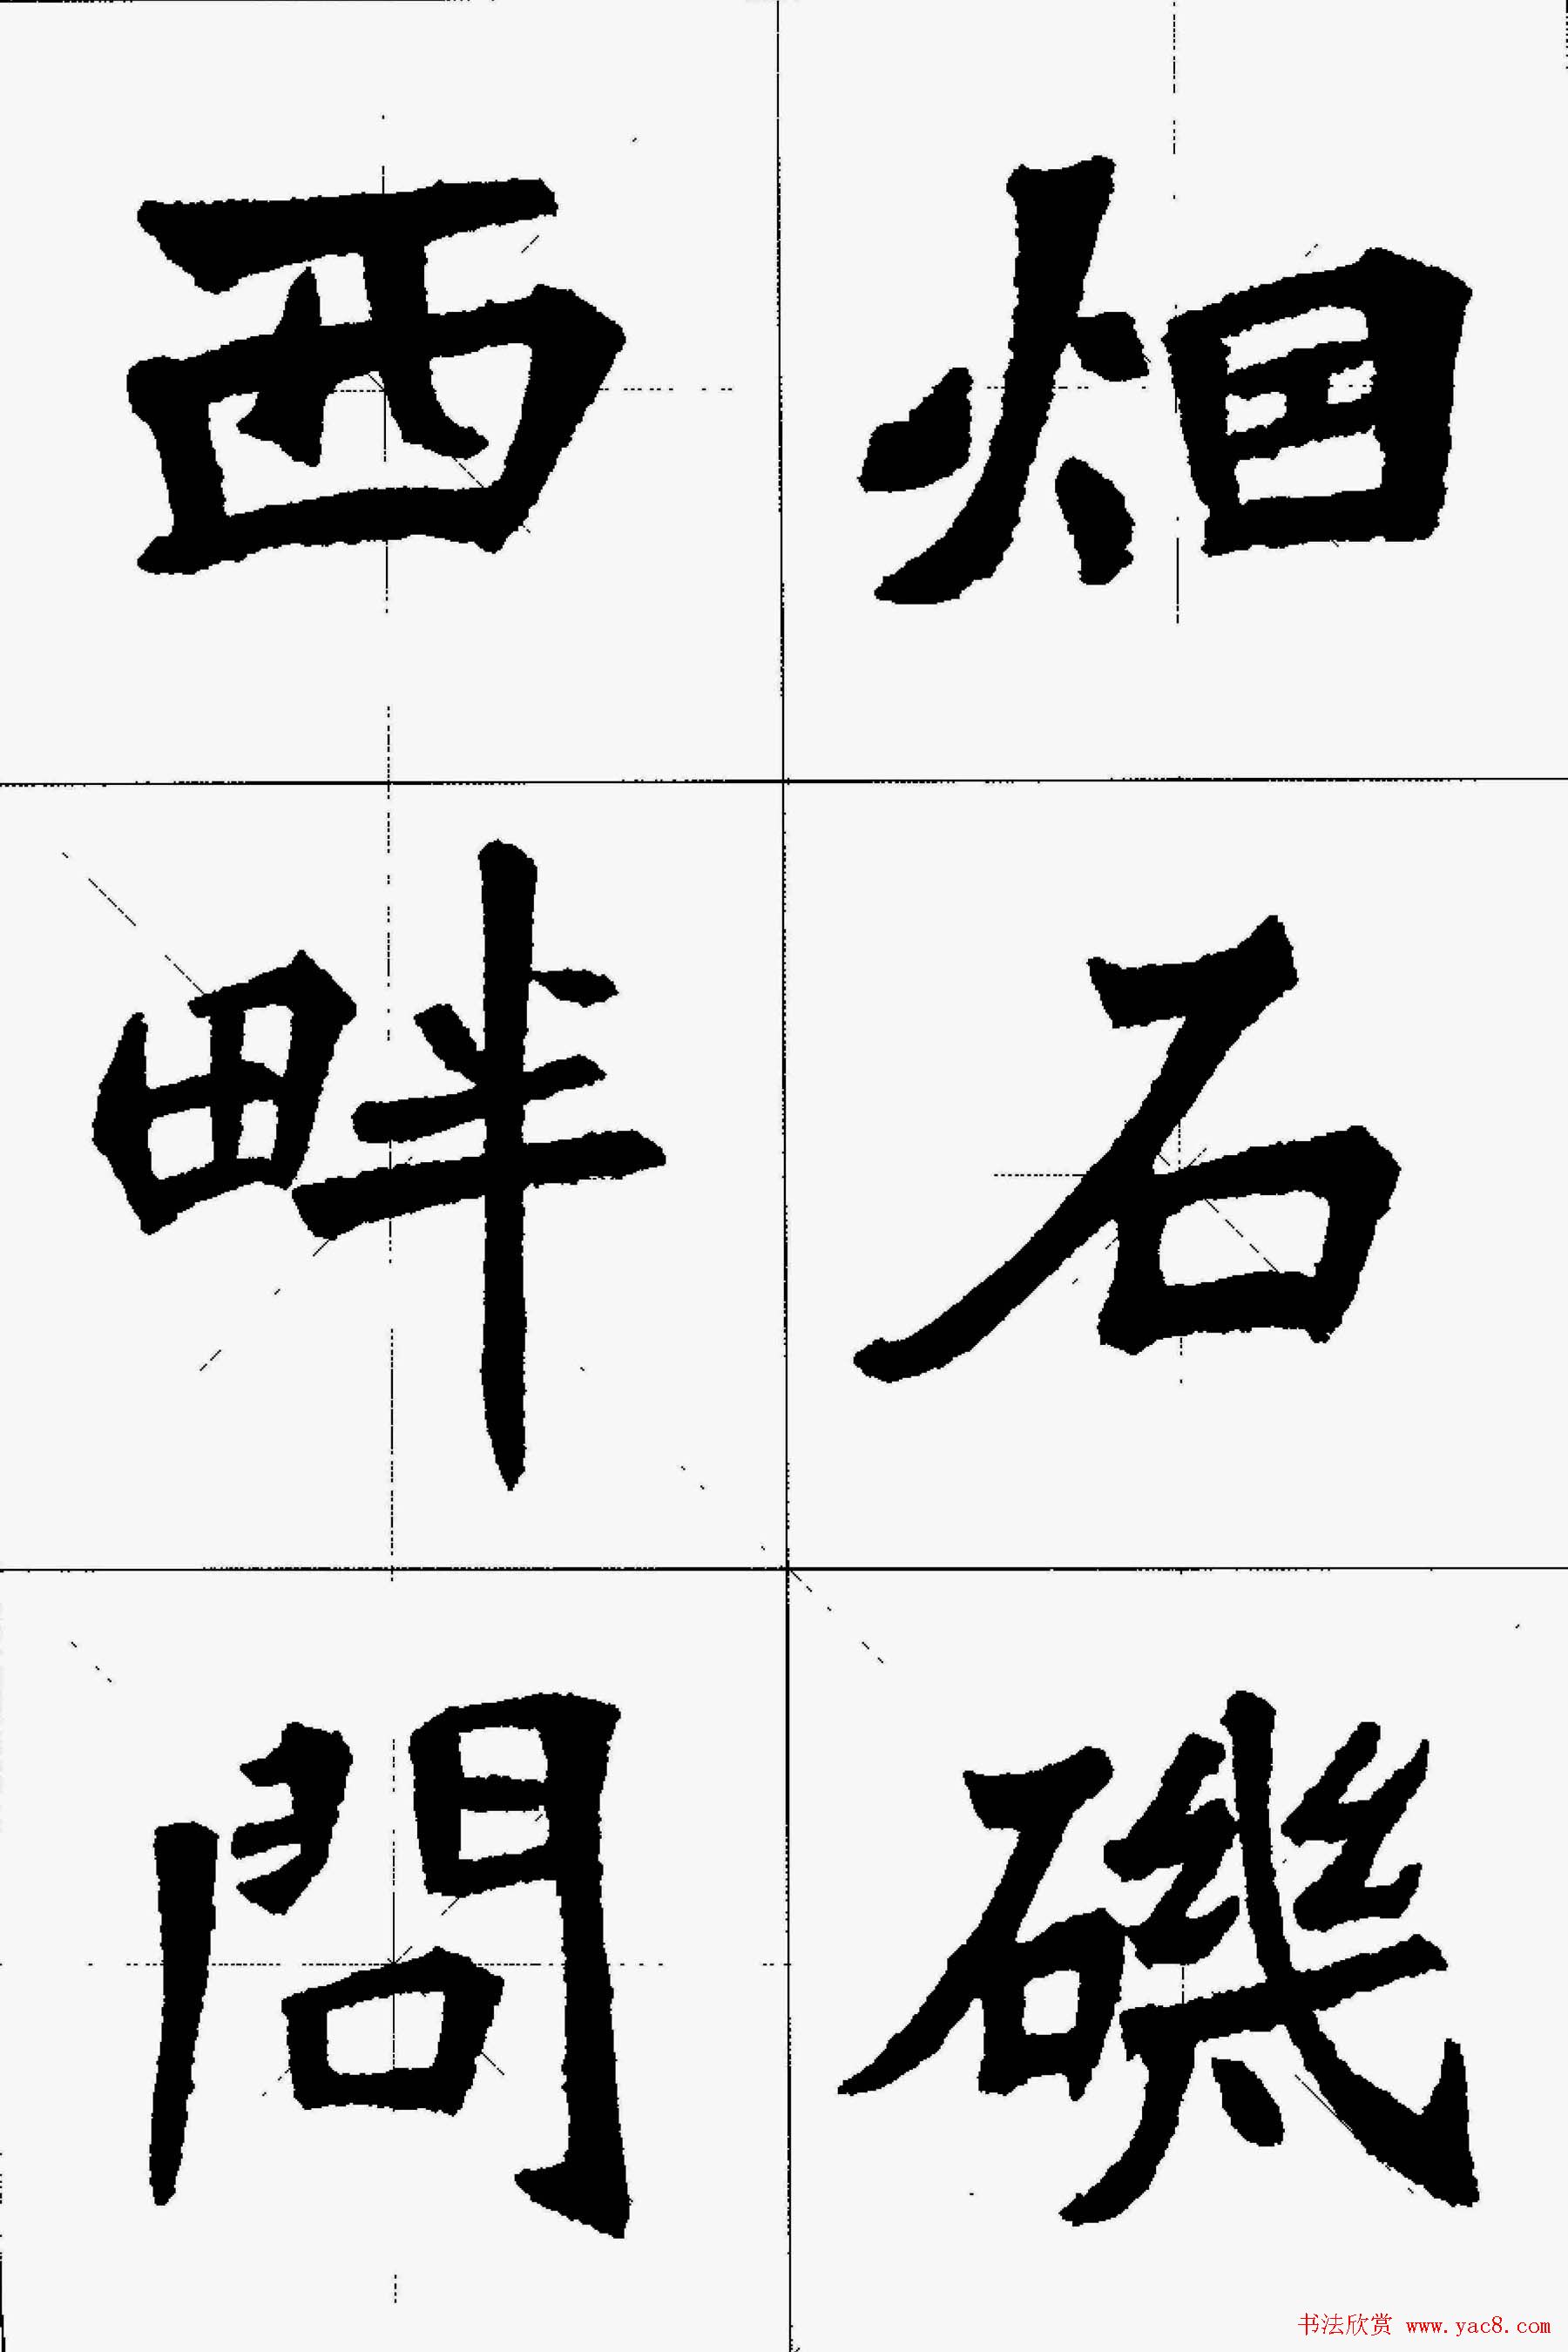 烟石磯
西畔問
书法欣赏 www.yac8.com